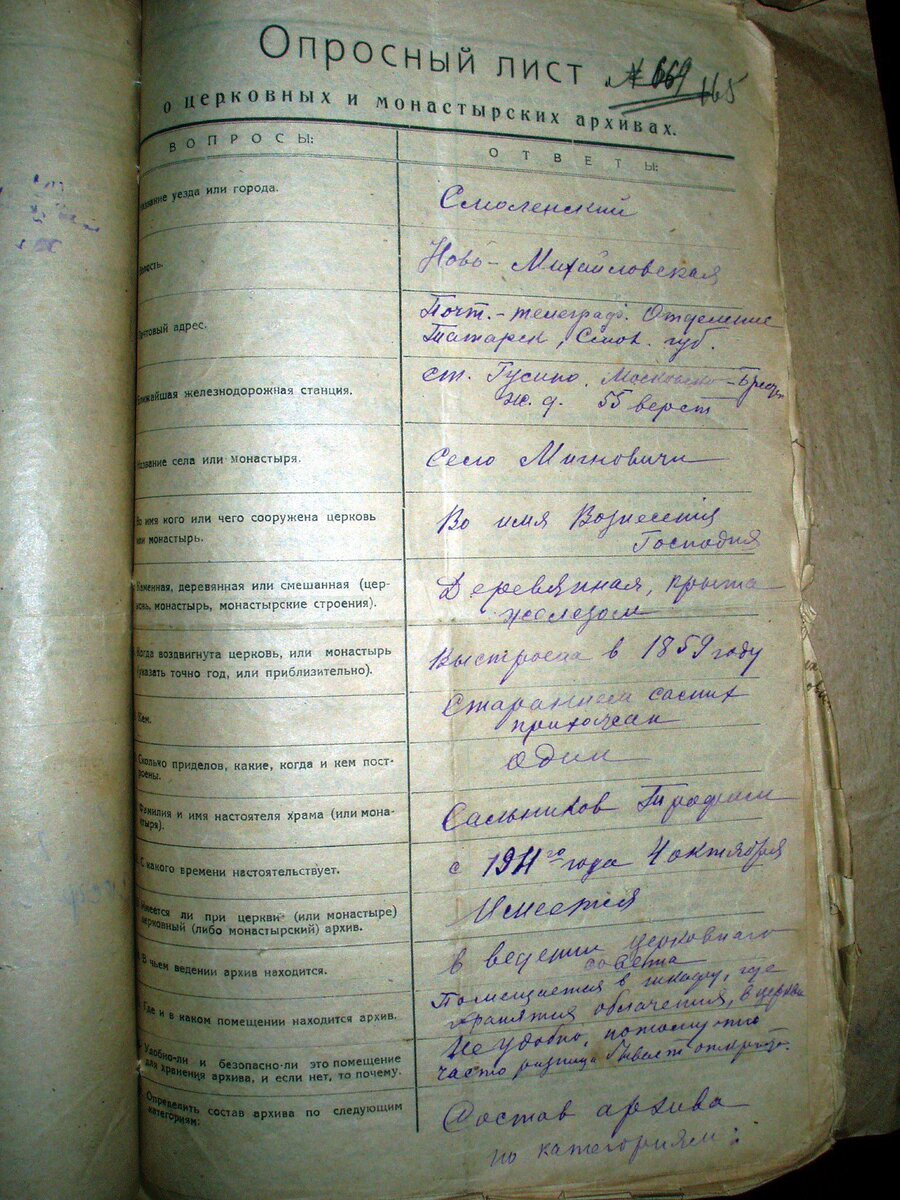 Опросный лист № 669
165
о церковных и монастырских архивах.
ВОПРОСЫ:
ОТВЕТЫ:
название уезда или города.
Смоленский
волость.
Ново-Михайловская
почтовый адрес.
Почт.-телеграф. Отделение
Татарск, Смол. губ.
Ближайшая железнодорожная станция.
ст. Гусино, Московско-Брест.
ж. д. 55 верст
Название села или монастыря.
Село Мигновичи
Во имя кого или чего сооружена церковь
или монастырь.
Во имя Вознесенія
Господня
Каменная, деревянная или смешанная (цер-
ковь, монастырь, монастырские строения).
Деревянная, крыта
железом
Когда воздвигнута церковь, или монастырь
(указать точно год, или приблизительно).
Выстроена в 1859 году
Кем.
Стараніем самих
прихожан
Сколько приделов, какие, когда и кем пост-
роены.
один
Фамилия и имя настоятеля храма (или мона-
стыря).
Сальников Трофим
С какого времени настоятельствует.
с 1911го года 4 октября
Имеется ли при церкви (или монастыре)
церковный (либо монастырский) архив.
Имеется
В чьем ведении архив находится.
в ведении церковнаго
совета
Где и в каком помещении находится архив.
Помещается в шкафу, где
хранятся облачения, в церкви
Удобно-ли и безопасно-ли это помещение
для хранения архива, и если нет, то почему.
Не удобно, потому что
часто ризница бывает открыта.
Определить состав архива по следующим
категориям:
Состав архива
по категориям: